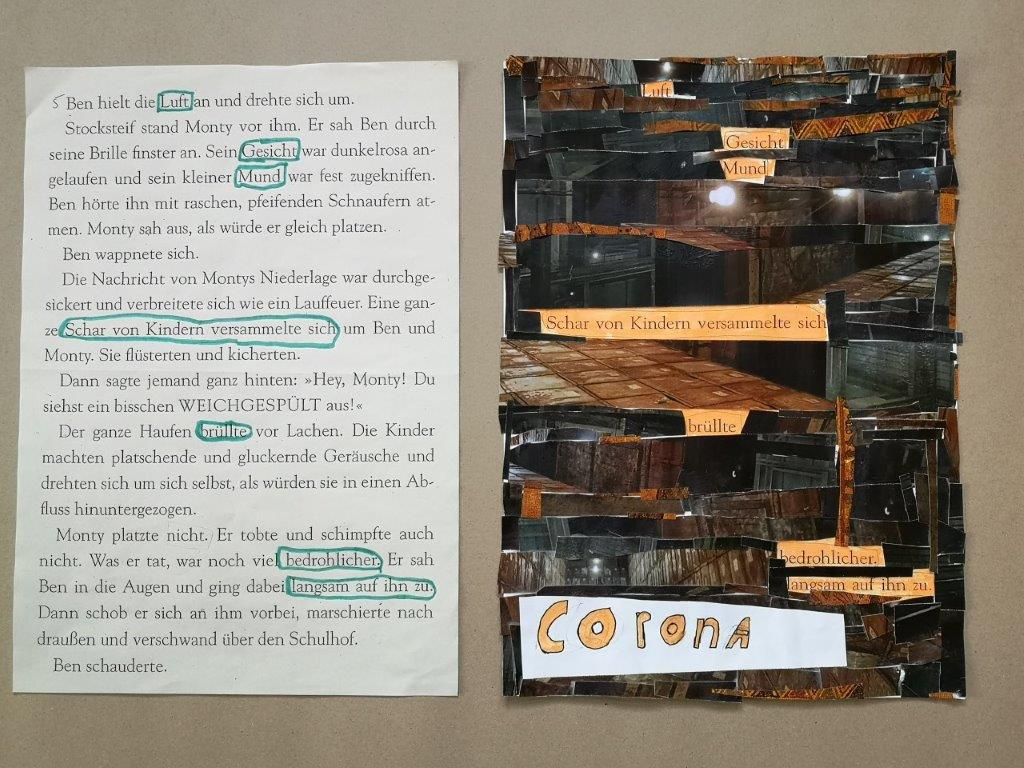 5 Ben hielt die Luft an und drehte sich um.
Stocksteif stand Monty vor ihm. Er sah Ben durch
seine Brille finster an. Sein Gesicht war dunkelrosa an-
gelaufen und sein kleiner Mund war fest zugekniffen.
Ben hörte ihn mit raschen, pfeifenden Schnaufern at-
men. Monty sah aus, als würde er gleich platzen.
Ben wappnete sich.
Die Nachricht von Montys Niederlage war durchge-
sickert und verbreitete sich wie ein Lauffeuer. Eine gan-
ze Schar von Kindern versammelte sich um Ben und
Monty. Sie flüsterten und kicherten.
Dann sagte jemand ganz hinten: »Hey, Monty! Du
siehst ein bisschen WEICHGESPÜLT aus!«
Der ganze Haufen brüllte vor Lachen. Die Kinder
machten platschende und gluckernde Geräusche und
drehten sich um sich selbst, als würden sie in einen Ab-
fluss hinuntergezogen.
Monty platzte nicht. Er tobte und schimpfte auch
nicht. Was er tat, war noch viel bedrohlicher. Er sah
Ben in die Augen und ging dabei langsam auf ihn zu.
Dann schob er sich an ihm vorbei, marschierte nach
draußen und verschwand über den Schulhof.
Ben schauderte.
Luft
Gesicht
Mund
Schar von Kindern versammelte sich
brüllte
bedrohlicher.
langsam auf ihn zu.
CoronA